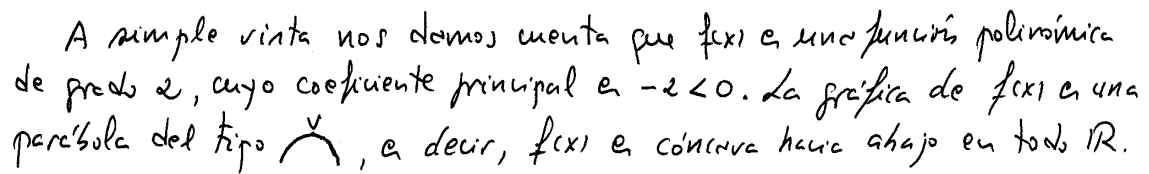 A simple vista nos damos cuenta que f(x) es una función polinómica
de grado 2, cuyo coeficiente principal es -2<0. La gráfica de f(x) es una
parábola del tipo V, es decir, f(x) es cóncava hacia abajo en todo ℝ.